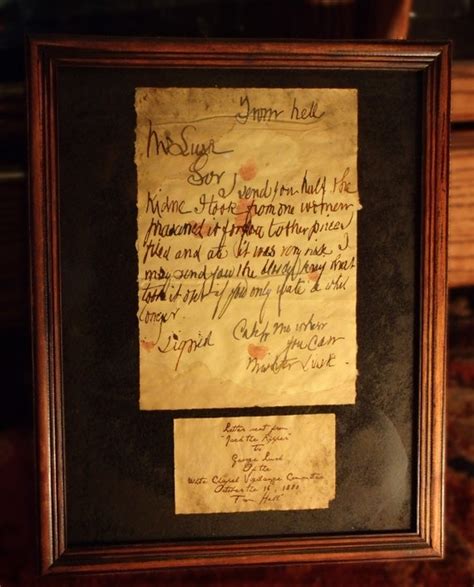 From hell
Mr Lusk
Sor
I send you half the
Kidne I took from one women
prasarved it for you tother piece I
fried and ate it was very nise I
may send you the bloody knif that
took it out if you only wate a whil
longer.
Signed Catch me when
you can
Mishter Lusk.
Letter sent from
"Jack the Ripper"
to
George Lusk
of the
White Chapel Vigilance Committee
October the 16, 1888
"From Hell"